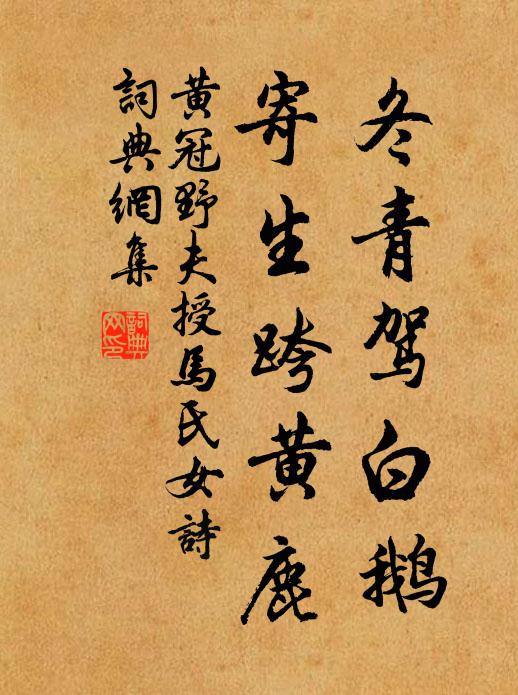 冬青駕白鵝
寄生跨黃鹿
黃冠野夫授馬氏女詩
詞典網集
詞典網印